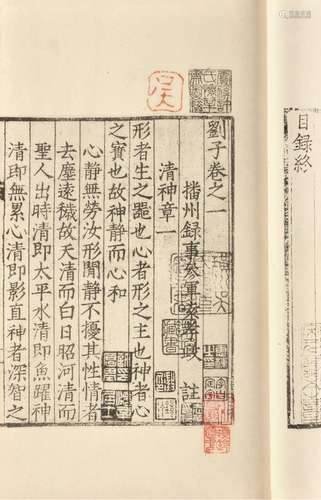 目録終
劉子卷之一
播州録事參軍袁孝政 註
清神章一
形者生之噐也心者形之主也神者心
之寶也故神静而心和
心静無勞汝形閒静不擾其性情者
去塵逺穢故天清而白日昭河清而
聖人出時清即太平水清即魚躍神
清即無累心清即影直神者深智之